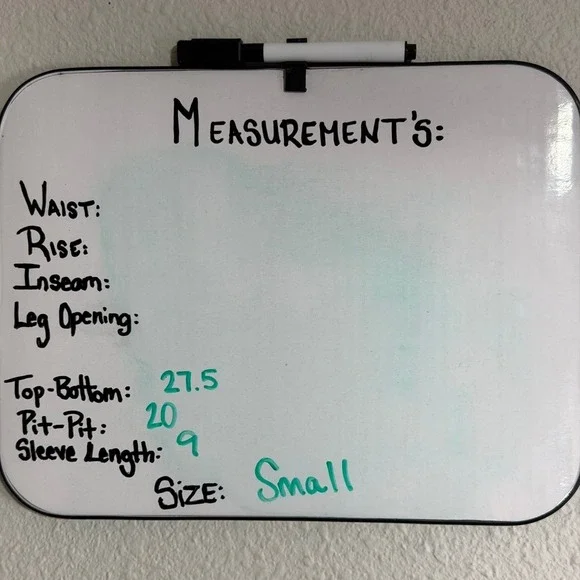 MEASUREMENT'S:
WAIST:
RISE:
Inseam:
Leg Opening:
Top-Bottom: 27.5
Pit-Pit: 20
Sleeve Length: 9
SiZE: Small